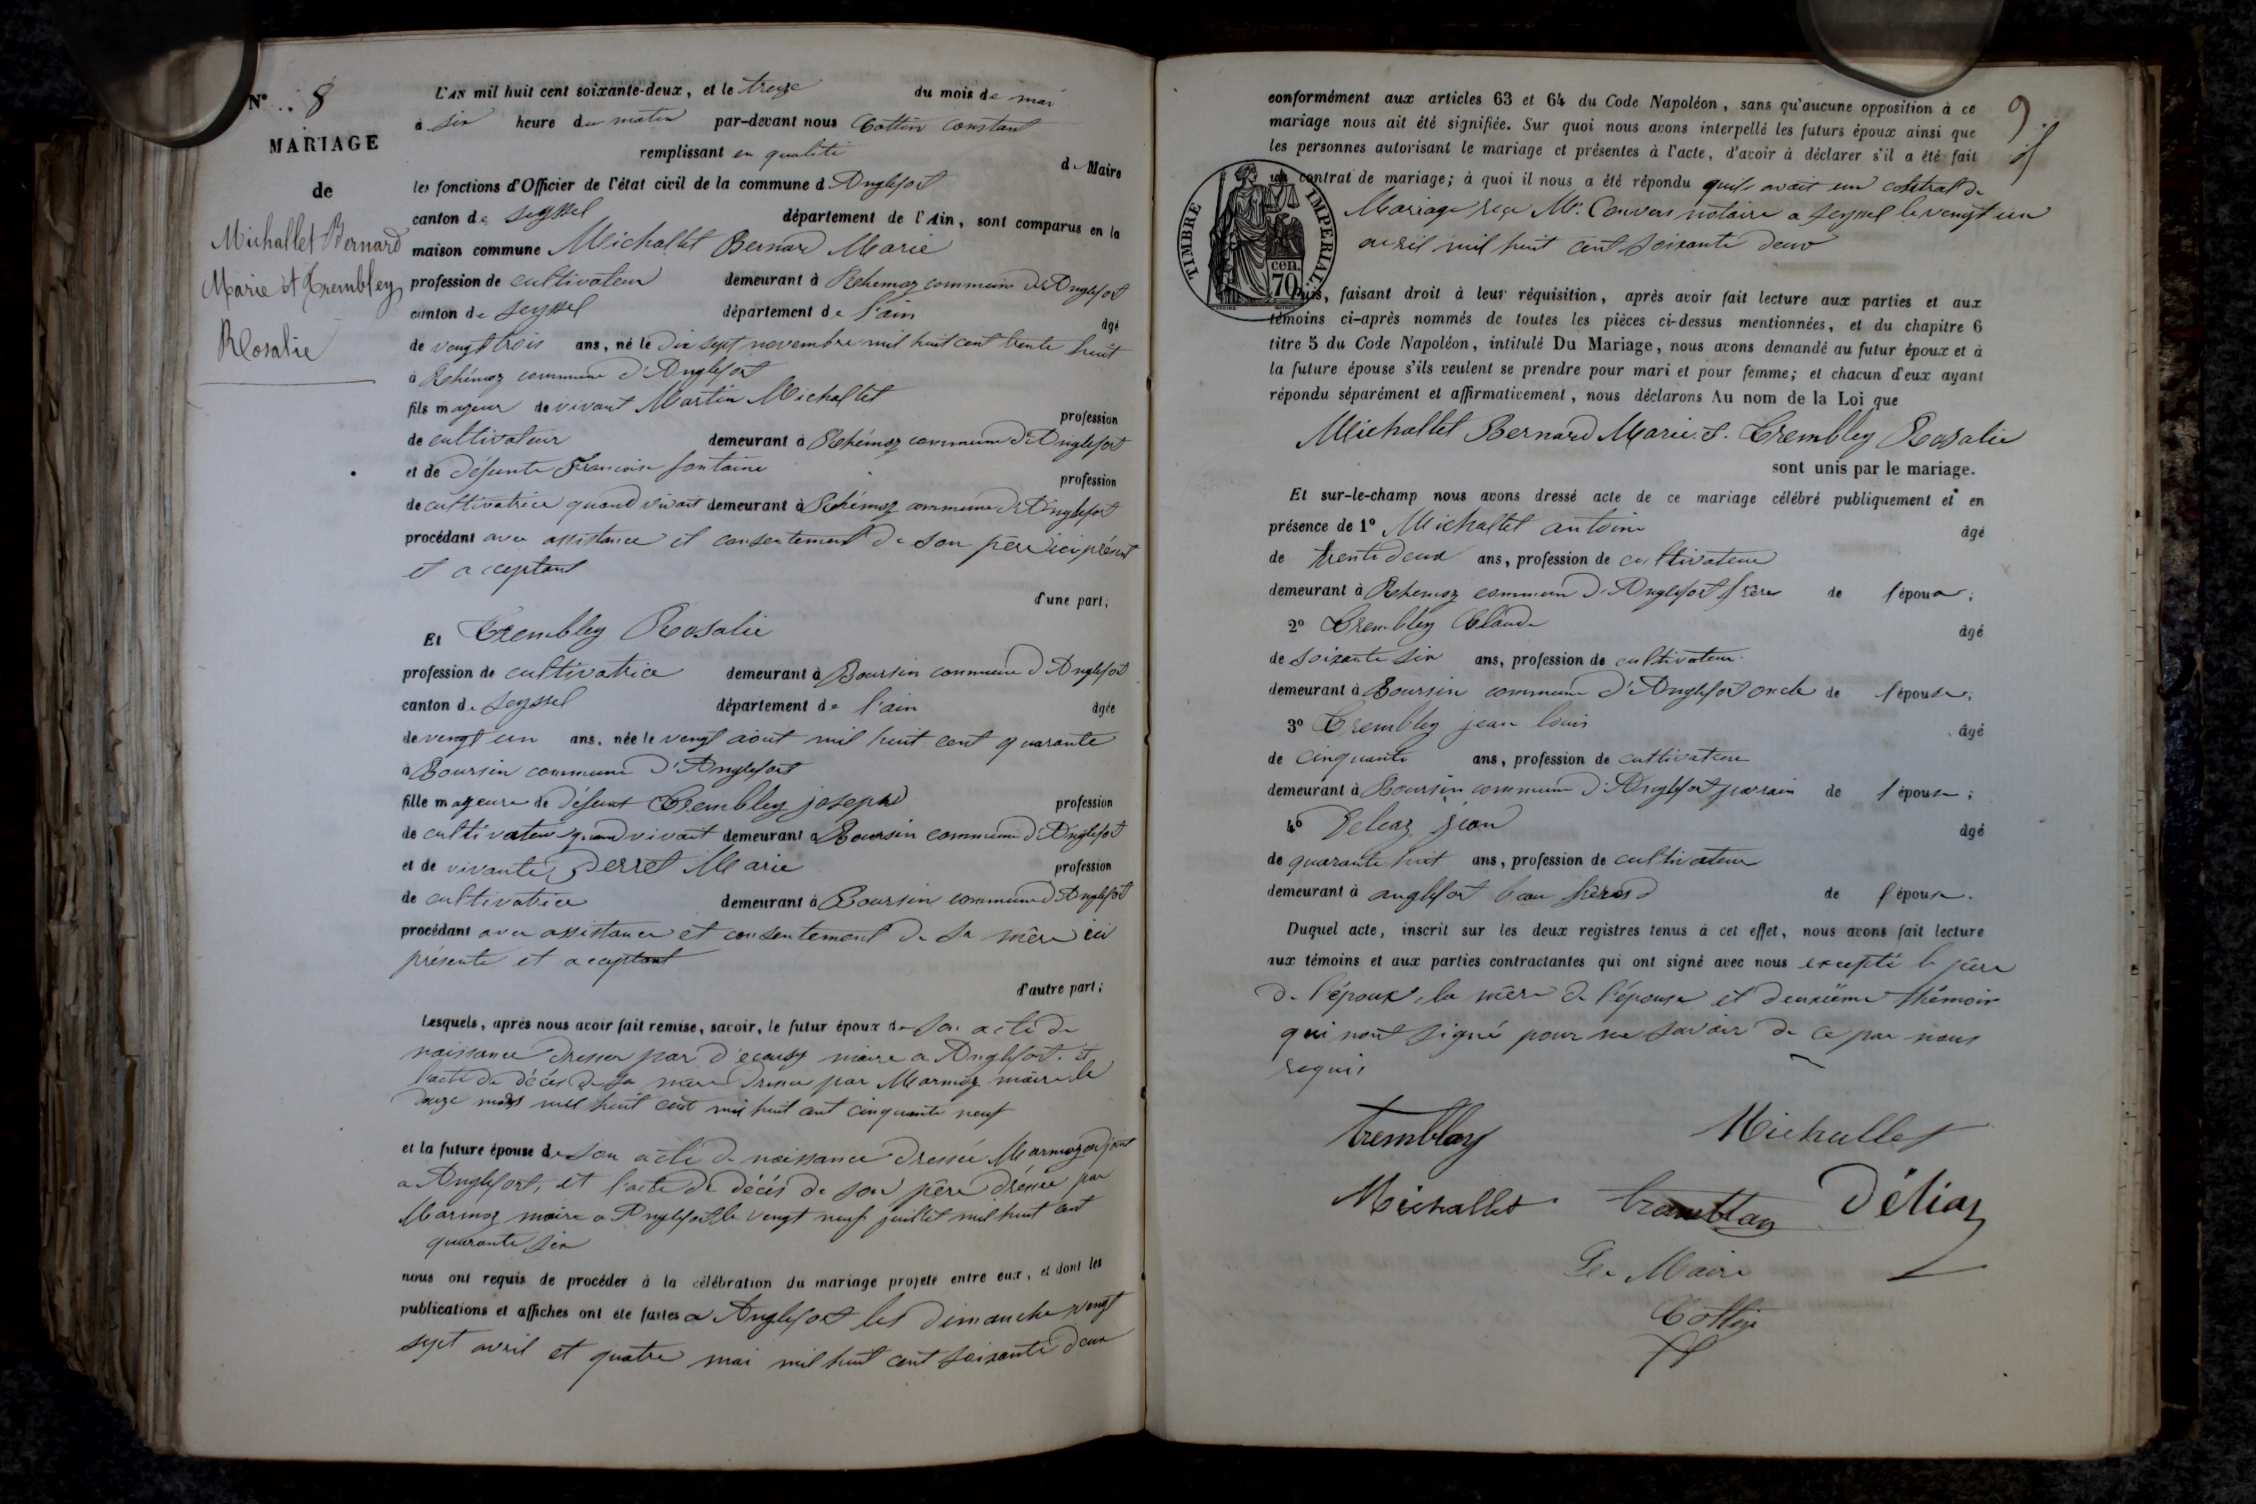 N° 8
MARIAGE
de
Michallet Bernard
Marie et Trembley
Rosalie
L'AN mil huit cent soixante-deux, et le treize du mois de mai
à six heure du matin par-devant nous Cottin constant
remplissant en qualité de Maire
les fonctions d'Officier de l'état civil de la commune d'Anglefort
canton de seyssel département de l'Ain, sont comparus en la
maison commune Michallet Bernard Marie
profession de cultivateur demeurant à Rhemoz commune d'Anglefort
canton de seyssel département de l'ain âgé
de vengt trois ans, né le dix sept novembre mil huit cent trente huit
à Rhémoz commune d'Anglefort
fils majeur de vivant Martin Michallet profession
de cultivateur demeurant à Rhémoz commune d'Anglefort
et de défunte Francoise fontaine profession
de cultivatrice quand vivait demeurant à Rhémoz commune d'Anglefort
procédant avec assistance et consentement de son père ici présent
et acceptant
d'une part;
Et Trembley Rosalie
profession de cultivatrice demeurant à Boursin commune d'Anglefort
canton de seyssel département de l'ain âgée
de vengt un ans, née le vengt aout mil huit cent quarante
à Boursin commune d'Anglefort
fille majeure de défunt Trembley joseph profession
de cultivateur quand vivant demeurant à Boursin commune d'Anglefort
et de vivante Perret Marie profession
de cultivatrice demeurant à Boursin commune d'Anglefort
procédant avec assistance et consentement de sa mère ici
présente et acceptant
d'autre part;
Lesquels, après nous avoir fait remise, savoir, le futur époux de son acte de
naissance dresser par maire a Anglefort. et
l'acte de décés de sa mère dresser par Marmoz maire le
douze mars mil huit cent mil huit cent cinquante neuf
et la future épouse de son acte de naissance dressée Marmoz adjoint
a Anglefort, et l'acte de décés de son père dressée par
Marmoz maire a Anglefort le vengt neuf juillet mil huit cent
quarante six
nous ont requis de procéder à la célébration du mariage projeté entre eux, et dont les
publications et affiches ont été faites a Anglefort les dimanche vengt
sept avril et quatre mai mil huit cent soixante deux
9
conformément aux articles 63 et 64 du Code Napoléon, sans qu'aucune opposition à ce
mariage nous ait été signifiée. Sur quoi nous avons interpellé les futurs époux ainsi que
les personnes autorisant le mariage et présentes à l'acte, d'avoir à déclarer s'il a été fait
un contrat de mariage; à quoi il nous a été répondu quils avait un contrat de
Mariage reçu Mr. Convers notaire a seyssel le vengt un
avril mil huit cent soixante deux
TIMBRE IMPERIAL
70 cen.
Puis, faisant droit à leur réquisition, après avoir fait lecture aux parties et aux
témoins ci-après nommés de toutes les pièces ci-dessus mentionnées, et du chapitre 6
titre 5 du Code Napoléon, intitulé Du Mariage, nous avons demandé au futur époux et à
la future épouse s'ils veulent se prendre pour mari et pour femme; et chacun d'eux ayant
répondu séparément et affirmativement, nous déclarons Au nom de la Loi que
Michallet Bernard Marie et Trembley Rosalie
sont unis par le mariage.
Et sur-le-champ nous avons dressé acte de ce mariage célébré publiquement et en
présence de 1° Michallet antoine âgé
de trente deux ans, profession de cultivateur
demeurant à Rhemoz commune d'Anglefort frère de l'époux;
2° Trembley Claude âgé
de soixante six ans, profession de cultivateur
demeurant à Boursin commune d'Anglefort oncle de l'épouse;
3° Trembley jean louis âgé
de cinquante ans, profession de cultivateur
demeurant à Boursin commune d'Anglefort parrain de l'épouse;
4° Deleaz jean âgé
de quarante huit ans, profession de cultivateur
demeurant à anglefort beau frère de l'épouse.
Duquel acte, inscrit sur les deux registres tenus à cet effet, nous avons fait lecture
aux témoins et aux parties contractantes qui ont signé avec nous excepté le père
de l'époux, la mère de l'épouse et deuxième thémoin
qui nont signé pour ne savoir de ce par nous
requis
tremblay Michallet
Michallet tremblay Déliaz
Le Maire
Cottin